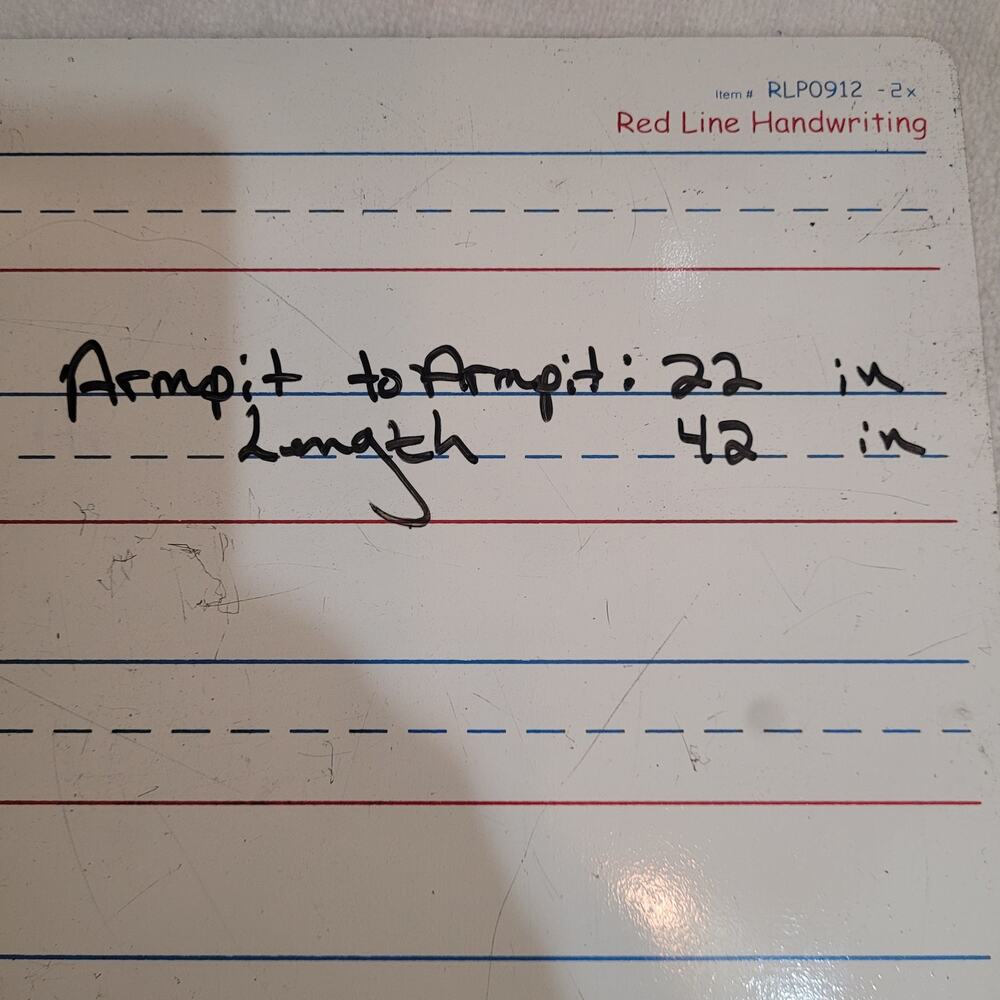 Item # RLP0912 - 2x
Red Line Handwriting
Armpit to Armpit: 22 in
Length 42 in